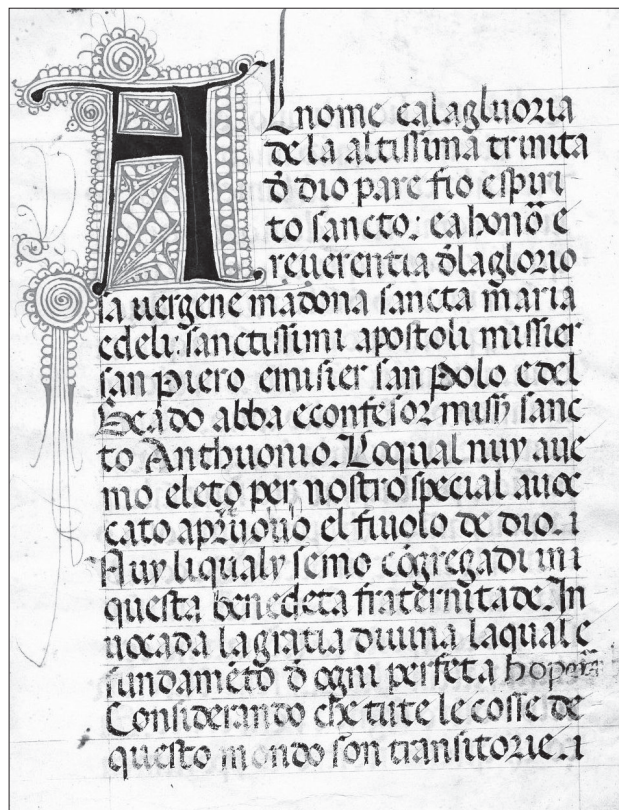 Al nome ea la gluoria
de la altissima trinita
đ dio pare fio e spiri
to sancto: ea honō e
reuerentia đ la glorio
sa uergene madona sancta maria
e deli sanctissimi apostoli missier
san Piero e misier san Polo e del
Beado abba e confesor miss̄ sanc
to Anthuonio. Loqual nuy aue
mo eleto per nostro special auo
cato el fiuolo de dio. i
Nuy li qualy semo cōgregadi in i
questa benedeta fraternitade. In
uocada la gratia diuina laqual e
fundamēto đ ogni perfeta
Considerando che tute le cosse de
questo mondo son transitorie. i